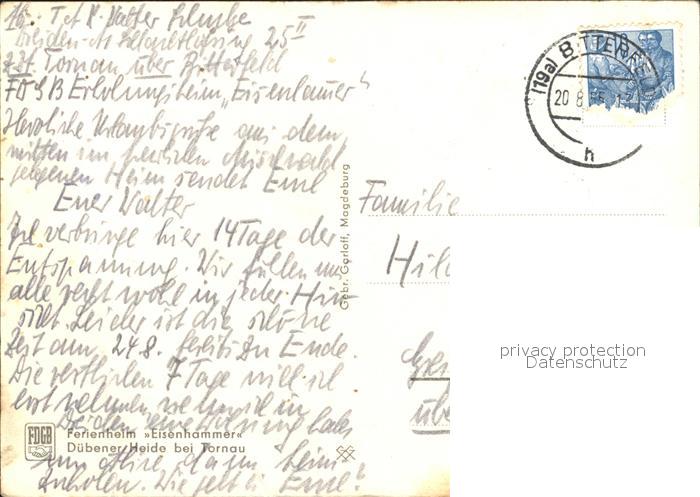 Walter
25 II
z.Zt. Tornau über Bitterfeld
FDGB Erholungsheim „Eisenhammer“
Herzliche Urlaubsgrüße aus dem
mitten im herrlichen Mischwald
gelegenen Heim sendet Euch
Euer Walter
Ich verbringe hier 14 Tage der
Entspannung. Wir fühlen uns
alle recht wohl in jeder Hin-
sicht. Leider ist die schöne
Zeit am 24.8. bereits zu Ende.
Die restlichen 7 Tage will ich
erst nehmen, wenn wir in
Dresden eine Wohnung haben
um dann beim
Wie geht es Euch?
FDGB
Ferienheim »Eisenhammer«
Dübener Heide bei Tornau
Gebr. Garloff, Magdeburg
(19a) BITTERFELD
20.8.
h
Familie
Hil
über
privacy protection
Datenschutz